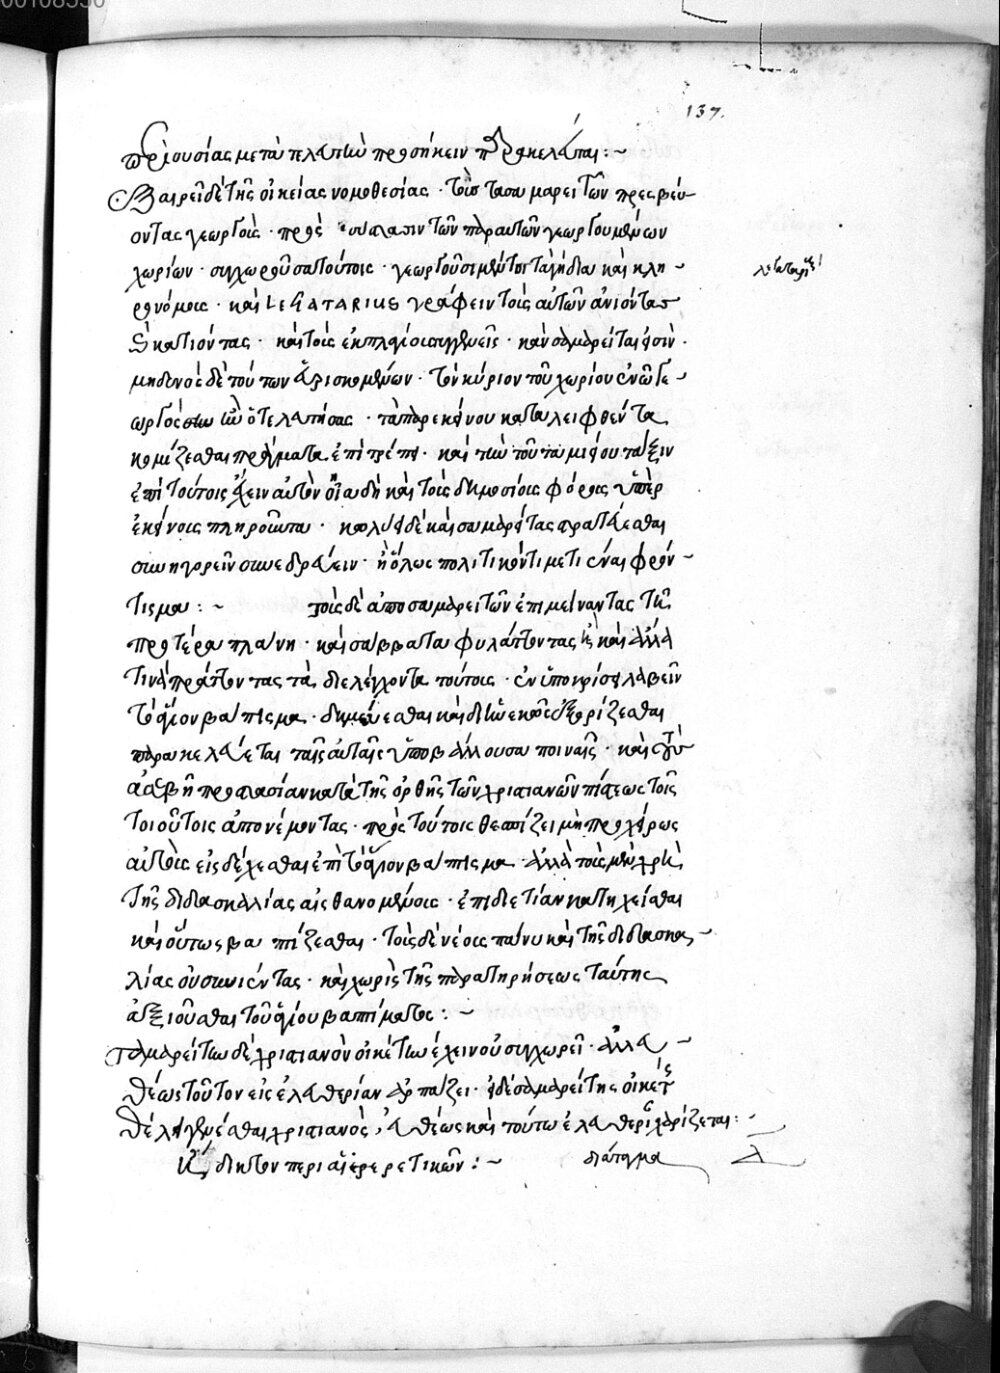 137.
περιουσίας μετὰ τελευτὴν προσήκειν παρακελεύεται :~
Ἐξαιρεῖ δὲ τῆς οἰκείας νομοθεσίας · τοὺς σαμαρείτῶν πρεσβεύ-
οντας γεωργοὺς · πρὸς τῶν παρ αὐτῶν γεωργουμένων
χωρίων · συγχωροῦσα τούτοις · γεωργοῦσι μέντοι καὶ κλη-
λεγατάριος
ρονόμοις · καὶ LEGATARIUS γράφειν τοὺς αὐτῶν ἀνιόντας
καὶ κατιόντας · καὶ τοὺς ἐκ πλαγίου συγγενεῖς · κἂν σαμαρεῖται ὦσιν ·
μηδενὸς δὲ τούτων εὑρισκομένων · τὸν κύριον τοῦ χωρίου ἐν ᾧ γε-
ωργὸς ἦν ὁ τελευτήσας · τὰ παρ ἐκείνου καταλειφθέντα
κομίζεσθαι πράγματα ἐπιτρέπει · καὶ τὴν τοῦ ταμιείου τάξιν
ἐπὶ τούτοις ἔχειν αὐτὸν οἷα δὴ καὶ τοὺς δημοσίους φόρους ὑπὲρ
ἐκείνους πληροῦντα · κωλύει δὲ καὶ σαμαρείτας στρατεύεσθαι
συνηγορεῖν συνεδρεύειν · ἢ ὅλως πολιτικόν τι μετιέναι φρόν-
τισμα :~ τοὺς δὲ ἀπὸ σαμαρειτῶν ἐπιμείναντας τῇ
προτέρᾳ πλάνῃ · καὶ σάββατα φυλάττοντας ἢ καὶ ἄλλά
τινὰ πράττοντας τὰ διελέγχοντα τούτοις · ἐν ὑποκρίσει λαβεῖν
τὸ ἅγιον βάπτισμα · δημεύεσθαι καὶ διηνεκῶς ἐξορίζεσθαι
παρακελεύεται ταῖς αὐταῖς ὑποβάλλουσα ποιναῖς · καὶ
ἀσεβῆ προστασίαν κατὰ τῆς ὀρθῆς τῶν χριστιανῶν πίστεως τοῖς
τοιούτοις ἀπονέμοντας · πρὸς τούτοις θεσπίζει μὴ προχείρως
αὐτοὺς εἰσδέχεσθαι ἐπὶ τὸ ἅγιον βάπτισμα · ἀλλὰ τοὺς μὲν
τῆς διδασκαλίας αἰσθανομένους · ἐπὶ διετίαν κατηχεῖσθαι
καὶ οὕτως βαπτίζεσθαι · τοὺς δὲ νέους πάνυ καὶ τῆς διδασκα-
λίας οὐ συνιέντας · καὶ χωρὶς τῆς παρατηρήσεως ταύτης
ἀξιοῦσθαι τοῦ ἁγίου βαπτίσματος :~
σαμαρείτην δὲ χριστιανὸν οἰκέτην ἔχειν οὐ συγχωρεῖ · ἀλλ ευ-
θέως τοῦτον εἰς ἐλευθερίαν ἁρπάζει · εἰ δὲ σαμαρείτης οἰκέτης
θέλει γενέσθαι χριστιανὸς, εὐθέως καὶ τούτῳ ἐλευθερίαν χαρίζεται :~
δικτον περὶ αἱρερετικῶν :~ διάταγμα λ